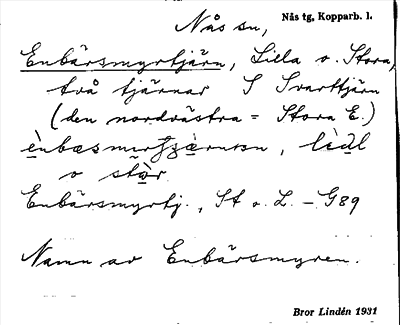 Nås sn, Nås tg, Kopparb. l.
Enbärsmyrtjärn, Lilla o. Stora,
två tjärnar S Svarttjärn
(den nordvästra = Stora E.)
o stor
Enbärsmyrtj., St o. L. – G89
Namn av Enbärsmyren.
Bror Lindén 1931